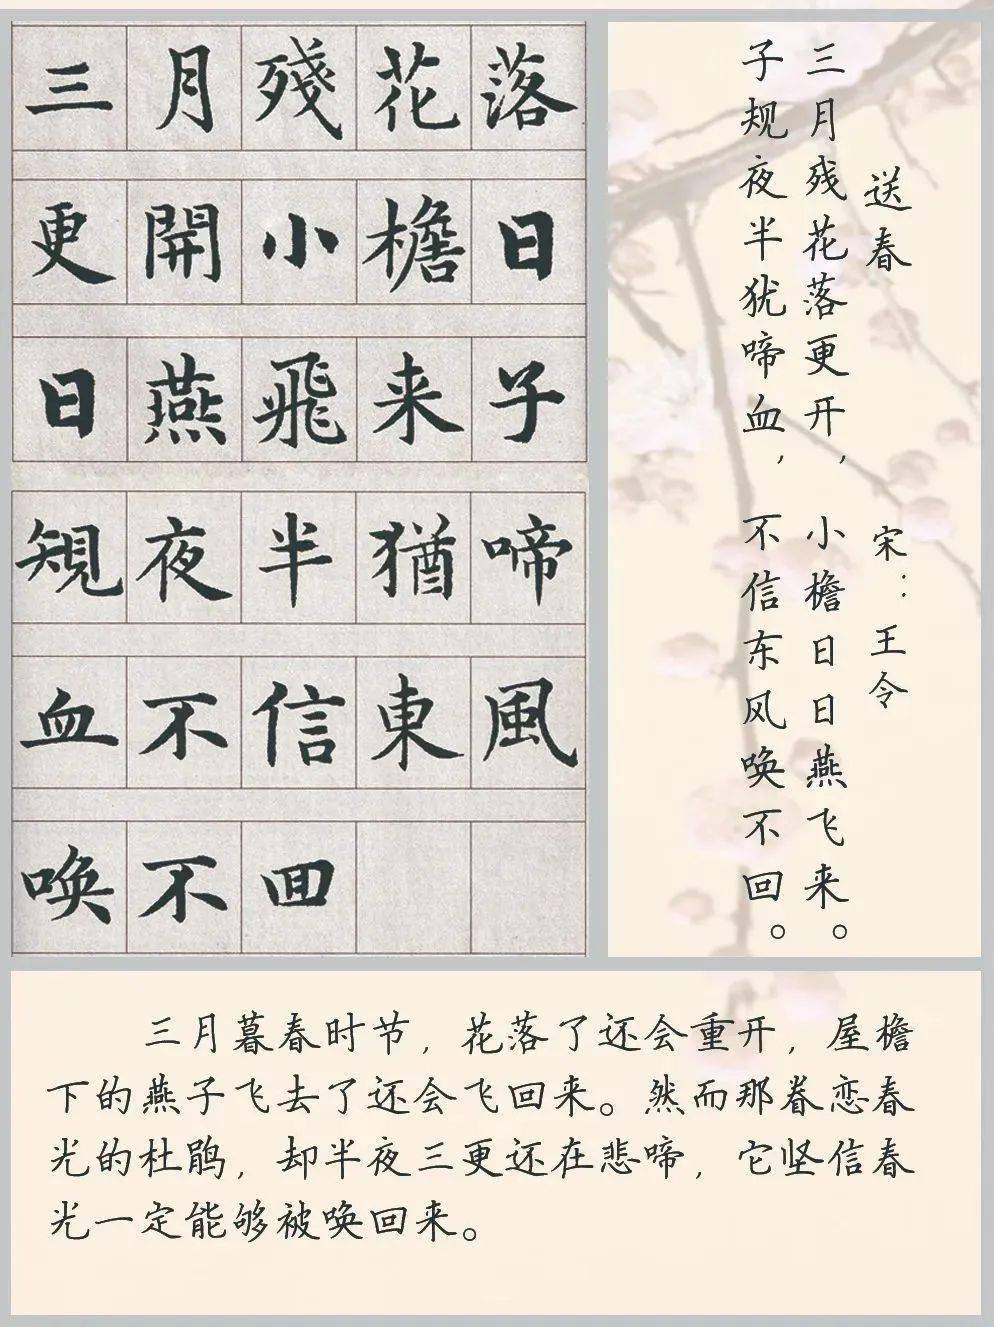 三月殘花落
更開小檐日
日燕飛来子
規夜半猶啼
血不信東風
唤不回
送春
宋：王令
三月残花落更开，小檐日日燕飞来。
子规夜半犹啼血，不信东风唤不回。
三月暮春时节，花落了还会重开，屋檐
下的燕子飞去了还会飞回来。然而那眷恋春
光的杜鹃，却半夜三更还在悲啼，它坚信春
光一定能够被唤回来。